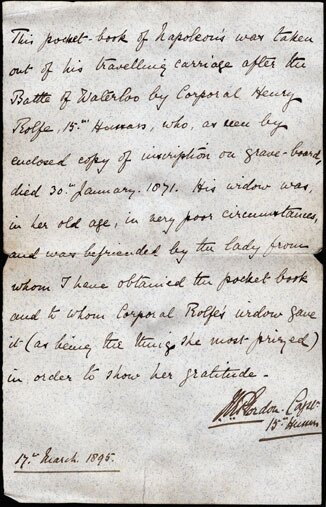 This pocket-book of Napoleon's was taken
out of his travelling carriage after the
Battle of Waterloo by Corporal Henry
Rolfe, 15th Hussars, who, as seen by
enclosed copy of inscription on grave-board,
died 30th January. 1871. His widow was,
in her old age, in very poor circumstances,
and was befriended by the lady from
whom I have obtained the pocket book
and to whom Corporal Rolfe's widow gave
it (as being the thing she most prized)
in order to show her gratitude -
Gordon Capt.
15th Hussars
17th March 1895.